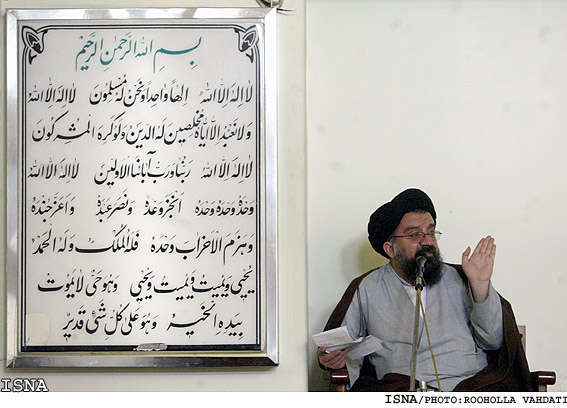 بِسمِ اللهِ الرَّحمٰنِ الرَّحیْمِ
لااِلٰهَ اِلاَّ اللهُ اِلٰهاً واحِداً وَنَحْنُ لَهُ مُسْلِمُونَ لااِلٰهَ اِلاَّ اللهُ
وَلانَعْبُدُ اِلاّ اِیّاهُ مُخْلِصینَ لَهُ الدّینَ وَلَوْکَرِهَ الْمُشْرِکُونَ
لااِلٰهَ اِلاَّ اللهُ رَبُّنا وَرَبُّ آبائِنَا الاَوَّلینَ لااِلٰهَ اِلاَّ اللهُ
وَحْدَهُ وَحْدَهُ وَحْدَهُ اَنْجَزَ وَعْدَهُ وَ نَصَرَ عَبْدَهُ وَ اَعَزَّ جُنْدَهُ
وَ هَزَمَ الاَحْزابَ وَحْدَهُ فَلَهُ الْمُلْکُ وَ لَهُ الْحَمْدُ
یُحْیی وَ یُمیتُ وَ یُمیتُ وَ یُحْیی وَ هُوَ حَیٌّ لایَمُوتُ
بِیَدِهِ الْخَیْرُ وَ هُوَ عَلی کُلِّ شَیْءٍ قَدیرٌ
ISNA
ISNA/PHOTO:ROOHOLLA VAHDATI